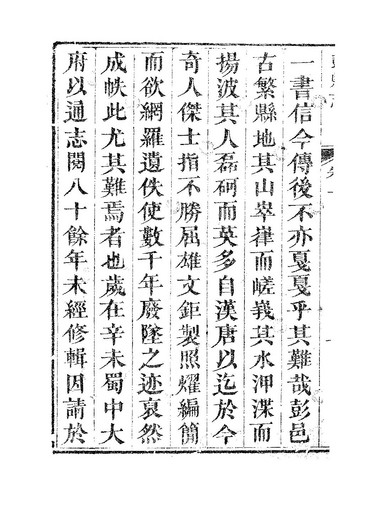 一書信今傳後不亦戛戛乎其難哉彭邑
古繁縣地其山崒嵂而嵯峩其水浺渫而
揚波其人磊砢而英多自漢唐以迄於今
奇人傑士指不勝屈雄文鉅製照燿編簡
而欲網羅遺佚使數千年廢墜之迹裒然
成帙此尤其難焉者也歲在辛未蜀中大
府以通志閱八十餘年未經修輯因請於